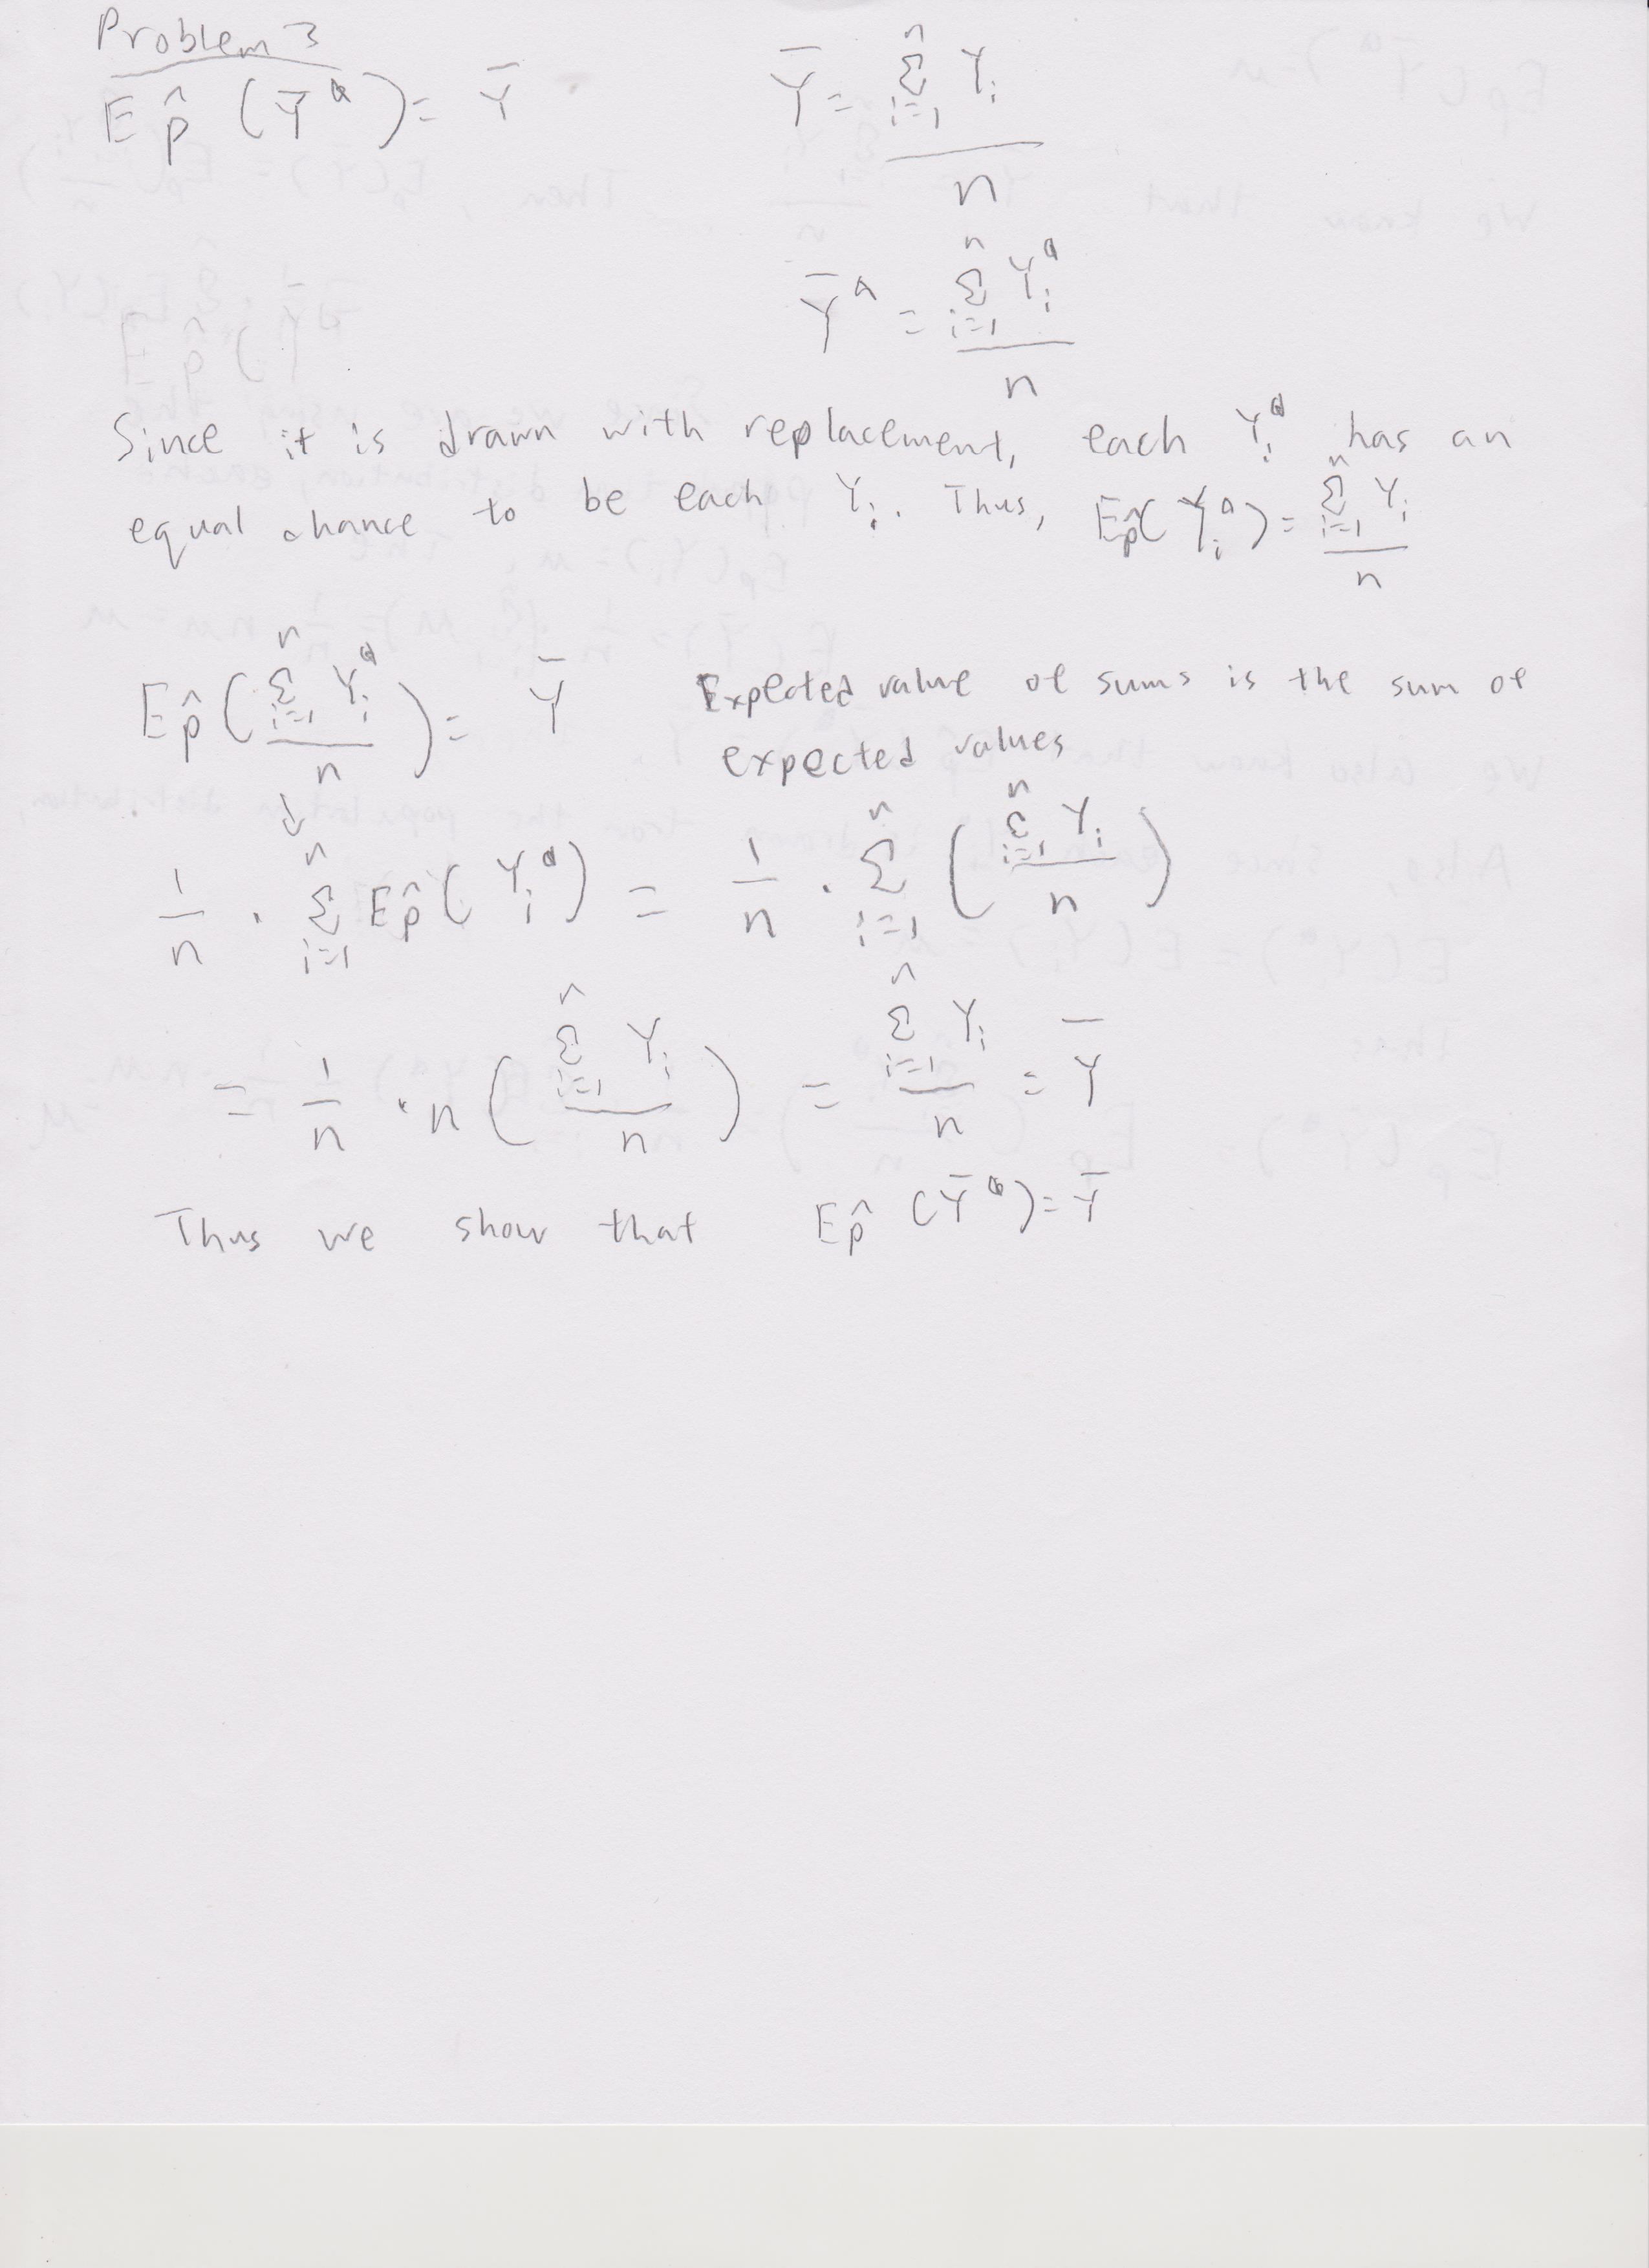 Problem 3
E p̂ (Ȳᵃ) = Ȳ
Ȳ = Σ_{i=1}^{n} Y_i / n
Ȳᵃ = Σ_{i=1}^{n} Y_iᵃ / n
Since it is drawn with replacement, each Y_iᵃ has an
equal chance to be each Y_i. Thus, E_p̂(Y_iᵃ) = Σ_{i=1}^{n} Y_i / n
E p̂ (Σ_{i=1}^{n} Y_iᵃ / n) = Ȳ
Expected value of sums is the sum of
expected values
↓
1/n · Σ_{i=1}^{n} E p̂ (Y_iᵃ) = 1/n · Σ_{i=1}^{n} (Σ_{i=1}^{n} Y_i / n)
= 1/n · n (Σ_{i=1}^{n} Y_i / n) = Σ_{i=1}^{n} Y_i / n = Ȳ
Thus we show that E p̂ (Ȳᵃ) = Ȳ